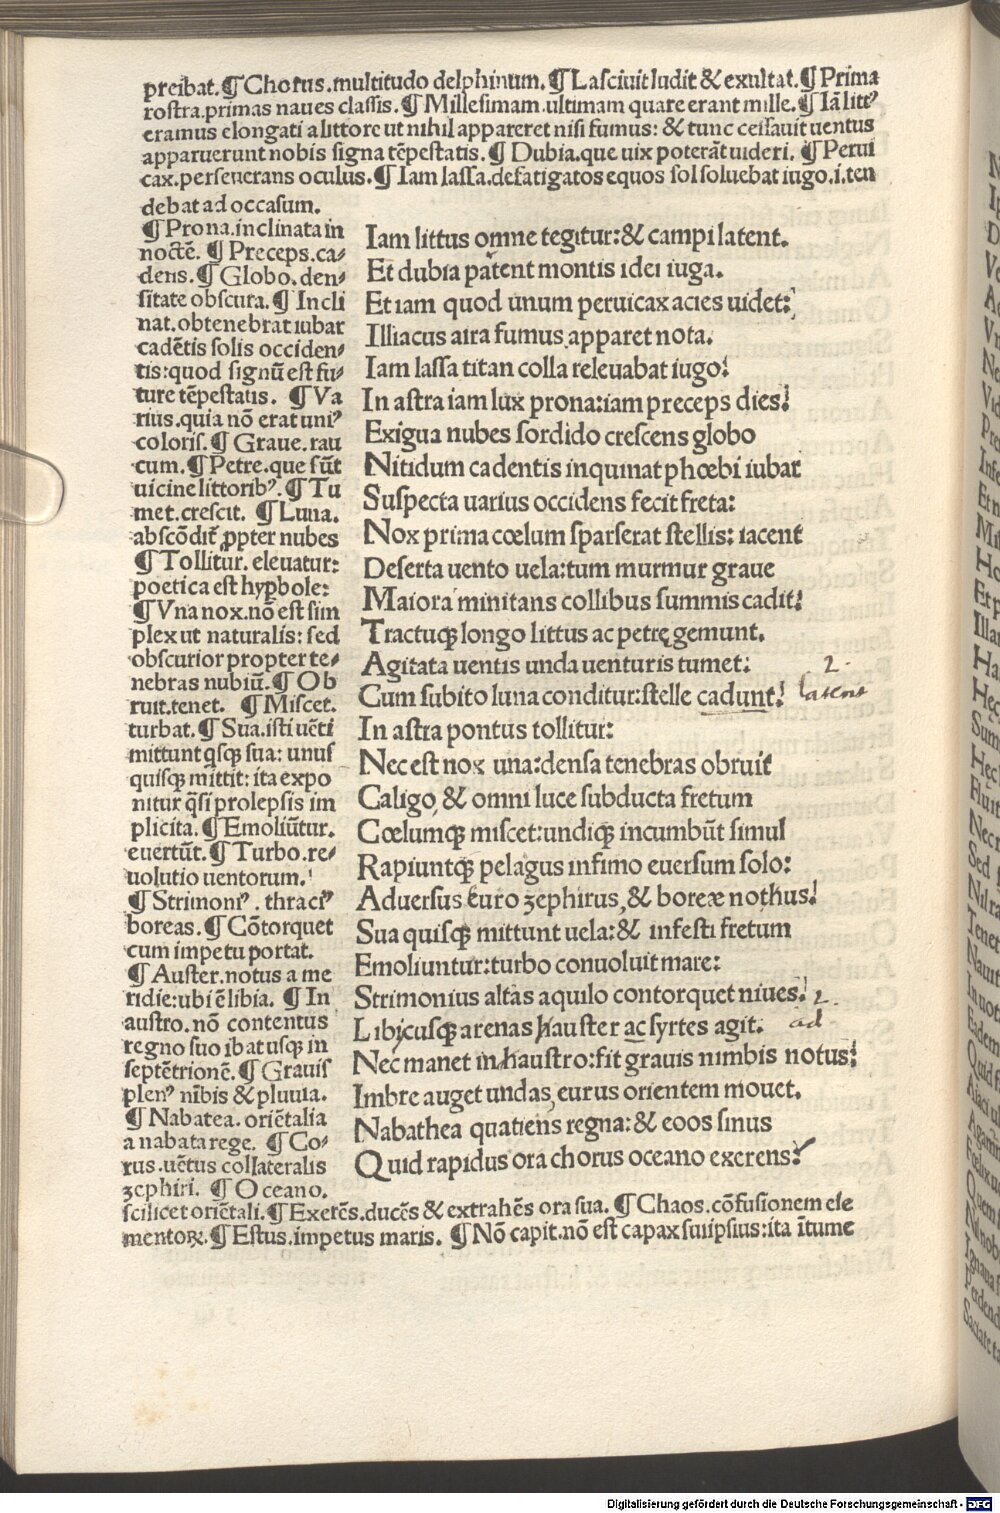 preibat.¶Chorus.multitudo delphinum.¶Lasciuit ludit & exultat.¶Prima
rostra.primas naues classis.¶Millesimam.ultimam quare erant mille.¶Iã littꝰ
eramus elongati a littore ut nihil appareret nisi fumus: & tunc cessauit uentus
apparuerunt nobis signa tẽpestatis.¶Dubia.que uix poterãt uideri.¶Perui
cax.perseuerans oculus.¶Iam lassa.defatigatos equos sol soluebat iugo.i.ten
debat ad occasum.
¶Prona.inclinata in
noctẽ.¶Preceps.ca-
dens.¶Globo.den-
sitate obscura.¶Incli
nat.obtenebrat iubar
cadẽtis solis occiden-
tis:quod signũ est fu-
ture tẽpestatis.¶Va
rius.quia nõ erat uniꝰ
coloris.¶Graue.rau
cum.¶Petre.que sũt
uicine littoribꝰ.¶Tu
met.crescit.¶Luna.
abscõdit̃ ꝓpter nubes
¶Tollitur.eleuatur:
poetica est hyꝑbole:
¶Vna nox.nõ est sim
plex ut naturalis: sed
obscurior propter te-
nebras nubiũ.¶Ob
ruit.tenet.¶Miscet.
turbat.¶Sua.isti uẽti
mittunt qͥsqꝫ sua: unus
quisqꝫ mittit: ita expo
nitur q̃si prolepsis im
plicita.¶Emoliũtur.
euertũt.¶Turbo.re-
uolutio uentorum.
¶Strimoniꝰ.thraciꝰ
boreas.¶Cõtorquet
cum impetu portat.
¶Auster.notus a me
ridie:ubi ẽ libia.¶In
austro.nõ contentus
regno suo ibat usqꝫ in
septẽtrionẽ.¶Grauis
plenꝰ nĩbis & pluuia.
¶Nabatea.oriẽtalia
a nabata rege.¶Co-
rus.uẽtus collateralis
zephiri.¶Oceano.
Iam littus omne tegitur:& campi latent.
Et dubia patent montis idei iuga.
Et iam quod unum peruicax acies uidet:
Illiacus atra fumus apparet nota.
Iam lassa titan colla releuabat iugo:
In astra iam lux prona:iam preceps dies:
Exigua nubes sordido crescens globo
Nitidum cadentis inquinat phœbi iubar
Suspecta uarius occidens fecit freta:
Nox prima cœlum sparserat stellis: iacent
Deserta uento uela:tum murmur graue
Maiora minitans collibus summis cadit:
Tractuqꝫ longo littus ac petrę gemunt.
Agitata uentis unda uenturis tumet: 2.
Cum subito luna conditur:stelle cadunt: latent
In astra pontus tollitur:
Nec est nox una:densa tenebras obruit
Caligo, & omni luce subducta fretum
Cœlumqꝫ miscet:undiqꝫ incumbũt simul
Rapiuntqꝫ pelagus infimo euersum solo:
Aduersus euro zephirus, & boreæ nothus:
Sua quisqꝫ mittunt uela:& infesti fretum
Emoliuntur:turbo conuoluit mare:
Strimonius altas aquilo contorquet niues: 2.
Libicusqꝫ arenas hauster ac syrtes agit. ad
Nec manet in haustro:fit grauis nimbis notus:
Imbre auget undas, eurus orientem mouet.
Nabathea quatiens regna:& eoos sinus
Quid rapidus ora chorus oceano exerens?
scilicet oriẽtali.¶Exerẽs.ducẽs & extrahẽs ora sua.¶Chaos.cõfusionem ele
mentoꝝ.¶Estus.impetus maris.¶Nõ capit.nõ est capax suiipsius:ita ĩtume
Digitalisierung gefördert durch die Deutsche Forschungsgemeinschaft - DFG